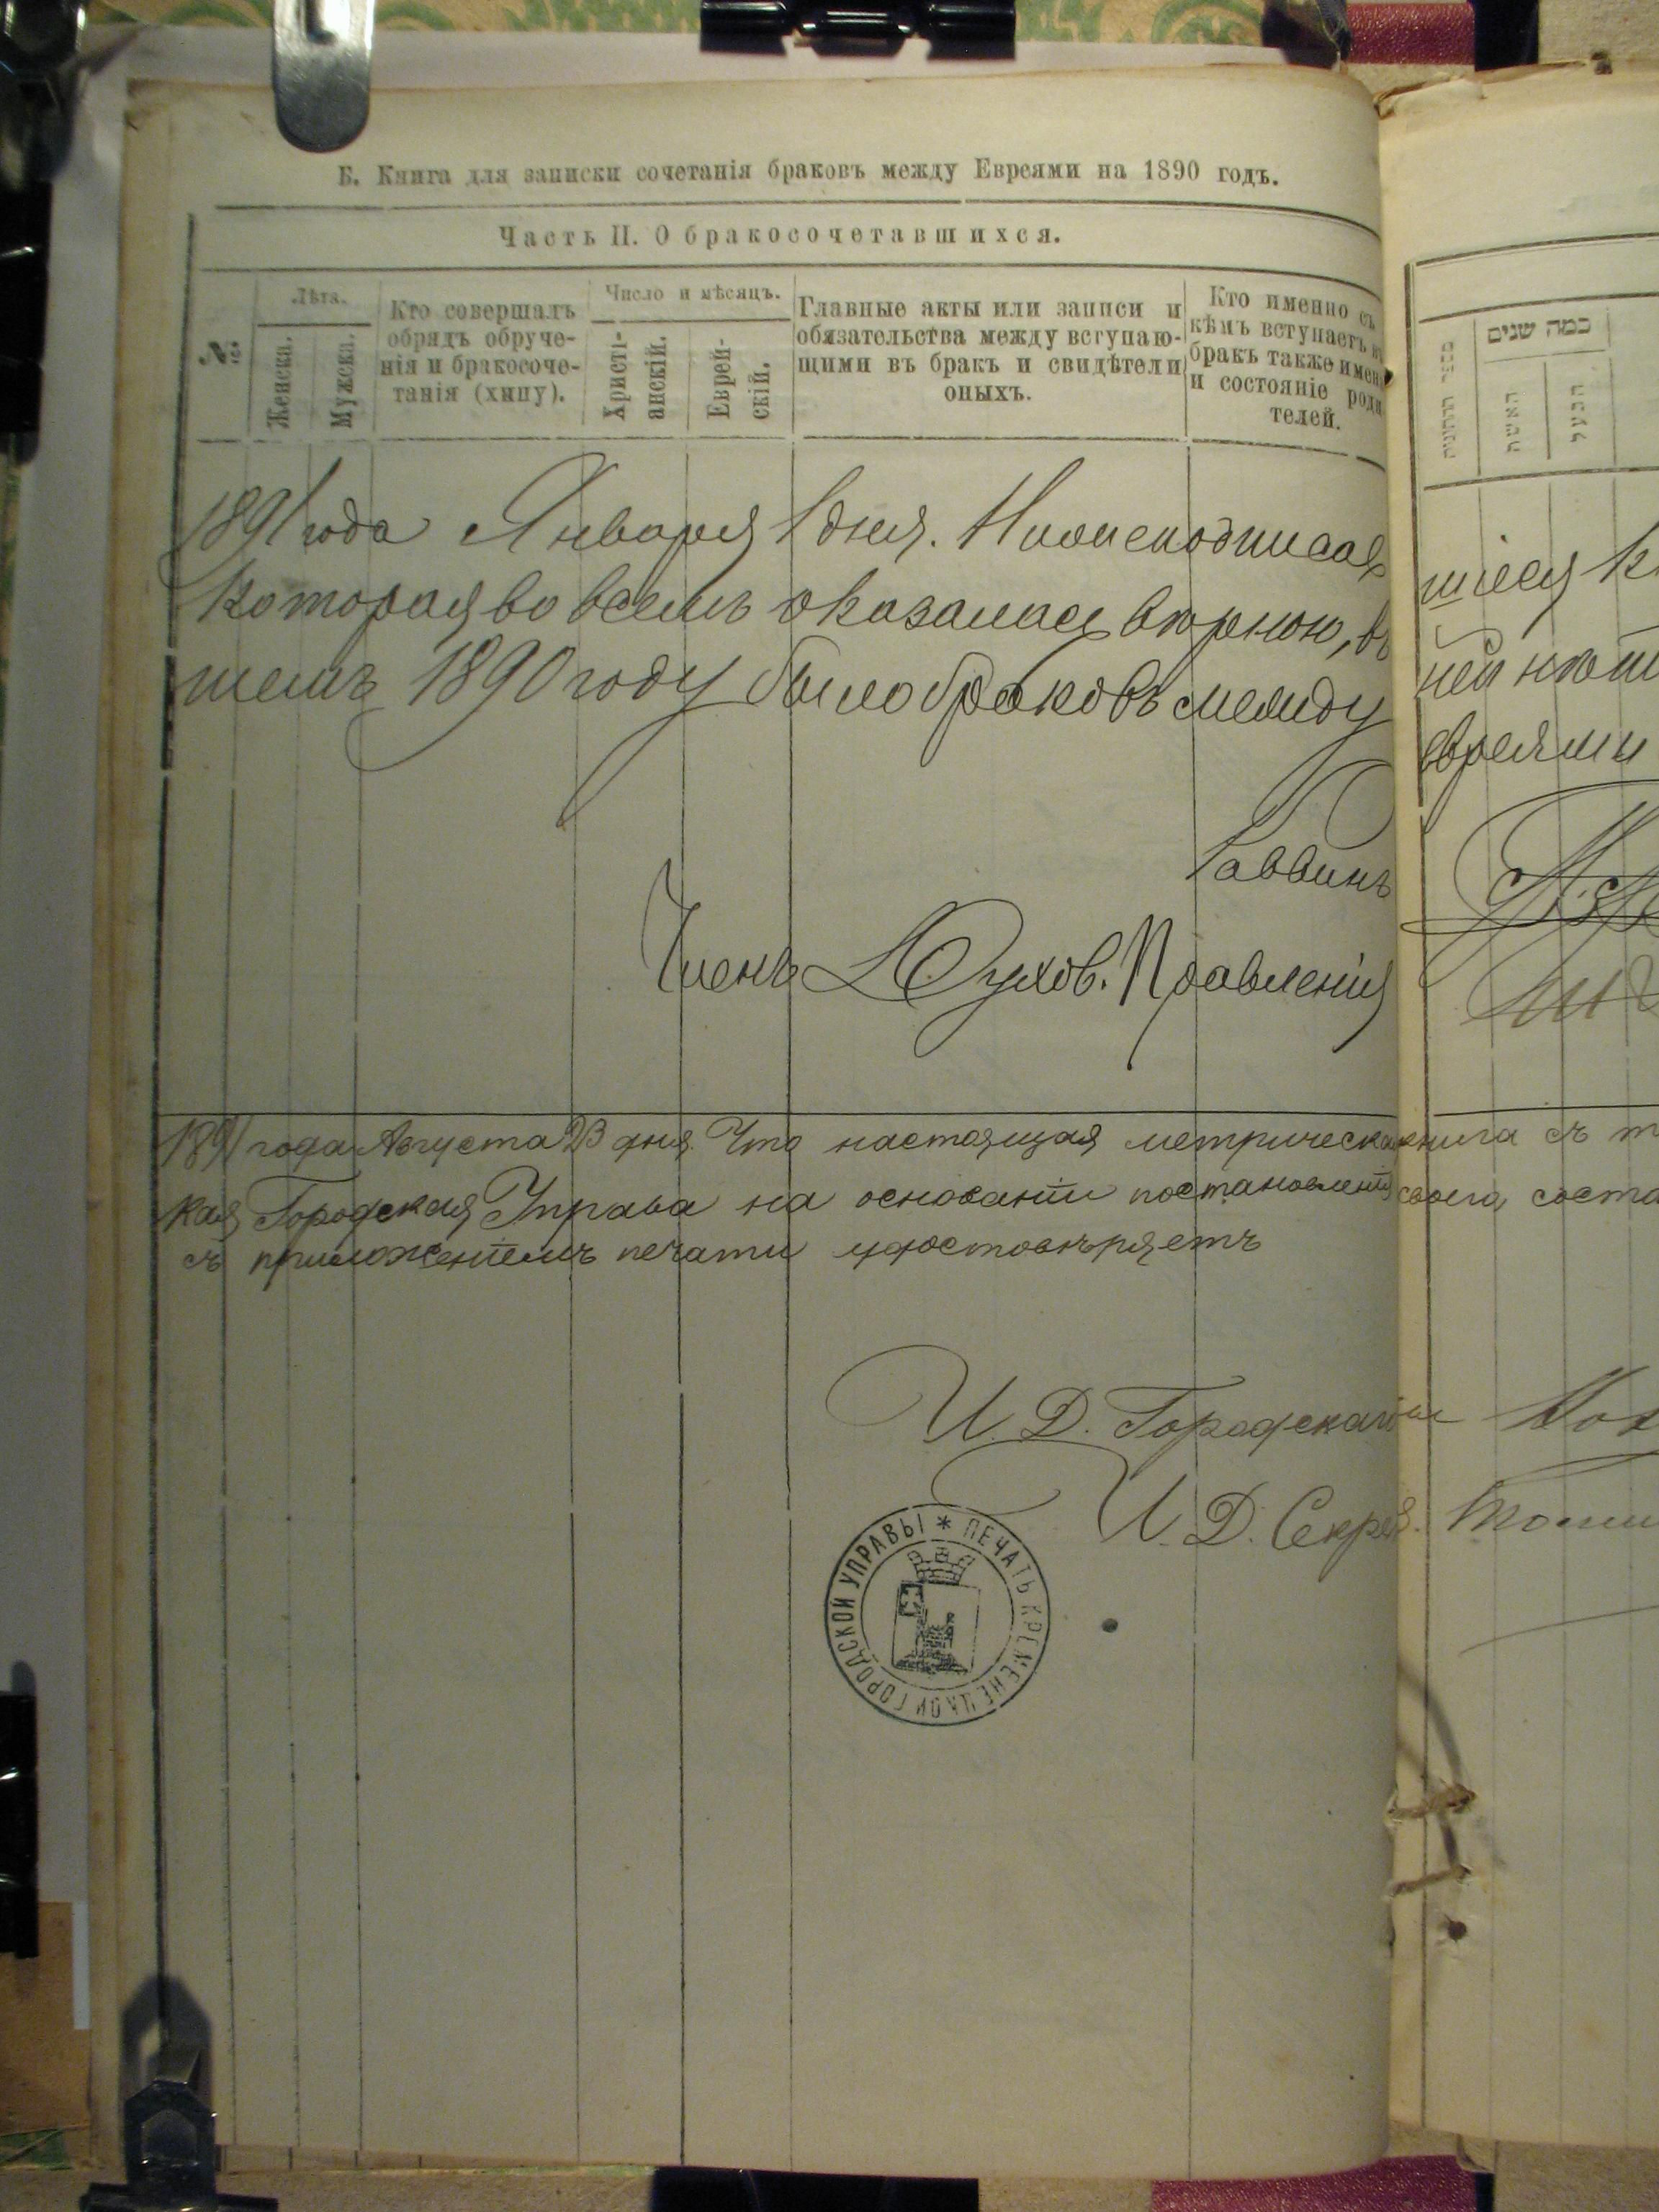 Б. Книга для записки сочетанія браковъ между Евреями на 1890 годъ.
Часть II. О бракосочетавшихся.
№
Лѣта.
Женска.
Мужска.
Кто совершалъ
обрядъ обруче-
нія и бракосоче-
танія (хипу).
Число и мѣсяцъ.
Христі-
анскій.
Еврей-
скій.
Главные акты или записи и
обязательства между вступаю-
щими въ бракъ и свидѣтели
оныхъ.
Кто именно съ
кѣмъ вступаетъ въ
бракъ также имена
и состояніе роди
телей.
כמה שנים
האשה
הבעל
1891 года Января 1 дня. Нижеподписав
шіеся
которая во всемъ оказалась вѣрною, въ
ней
шемъ 1890 году было браковъ между
евреями
Раввинъ
Членъ Духов. Правленія
1891 года Августа 23 дня. Что настоящая метрическая книга съ
кая Городская Управа на основаніи постановленія своего, соста
съ приложеніемъ печати удостовѣряетъ
И. Д. Городскаго
И. Д. Секрет.
ПЕЧАТЬ КРЕМЕНЕЦКОЙ ГОРОДСКОЙ УПРАВЫ *